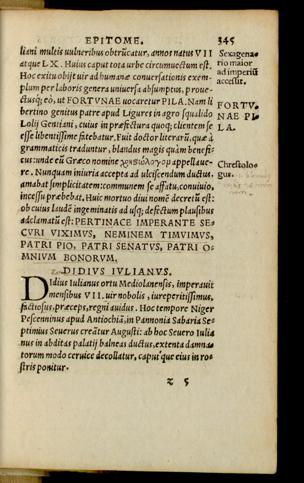 EPITOME. 345
liani multis vulneribus obtrūcatur, annos natus VII
atque LX. Huius caput tota urbe circumuectum est.
Hoc exitu obijt vir ad humanæ conuersationis exem-
plum per laboris genera uniuersa absumptus, proue-
ctusq; eò, ut FORTVNAE uocaretur PILA. Nam li
bertino genitus patre apud Ligures in agro squalido
Lolij Gentiani, cuius in præfectura quoq; clientem se
esse libentissime fatebatur. Fuit doctor literarū, quæ à
grammaticis traduntur, blandus magis quàm benefi-
cus: unde eū Græco nomine χρηστολόγον appellaue-
re. Nunquam iniuria accepta ad ulciscendum ductus,
amabat simplicitatem: communem se affatu, conuiuio,
incessu præbebat. Huic mortuo diui nomē decretū est:
ob cuius laudē ingeminatis ad usq; defectum plausibus
adclamatū est: PERTINACE IMPERANTE SE-
CVRI VIXIMVS, NEMINEM TIMVIMVS,
PATRI PIO, PATRI SENATVS, PATRI O-
MNIVM BONORVM.
DIDIVS IVLIANVS.
Didius Iulianus ortu Mediolanensis, imperauit
mensibus VII. vir nobilis, iureperitissimus,
factiosus, præceps, regni auidus. Hoc tempore Niger
Pescenninus apud Antiochiā, in Pannonia Sabaria Se-
ptimius Seuerus creātur Augusti: ab hoc Seuero Iulia
nus in abditas palatij balneas ductus, extenta damna-
torum modo ceruice decollatur, caputq́ue eius in ro-
stris ponitur.
z 5
Sexagena-
rio maior
ad imperiū
accessit.
FORTV-
NAE PI-
LA.
Chrestolo-
gus.